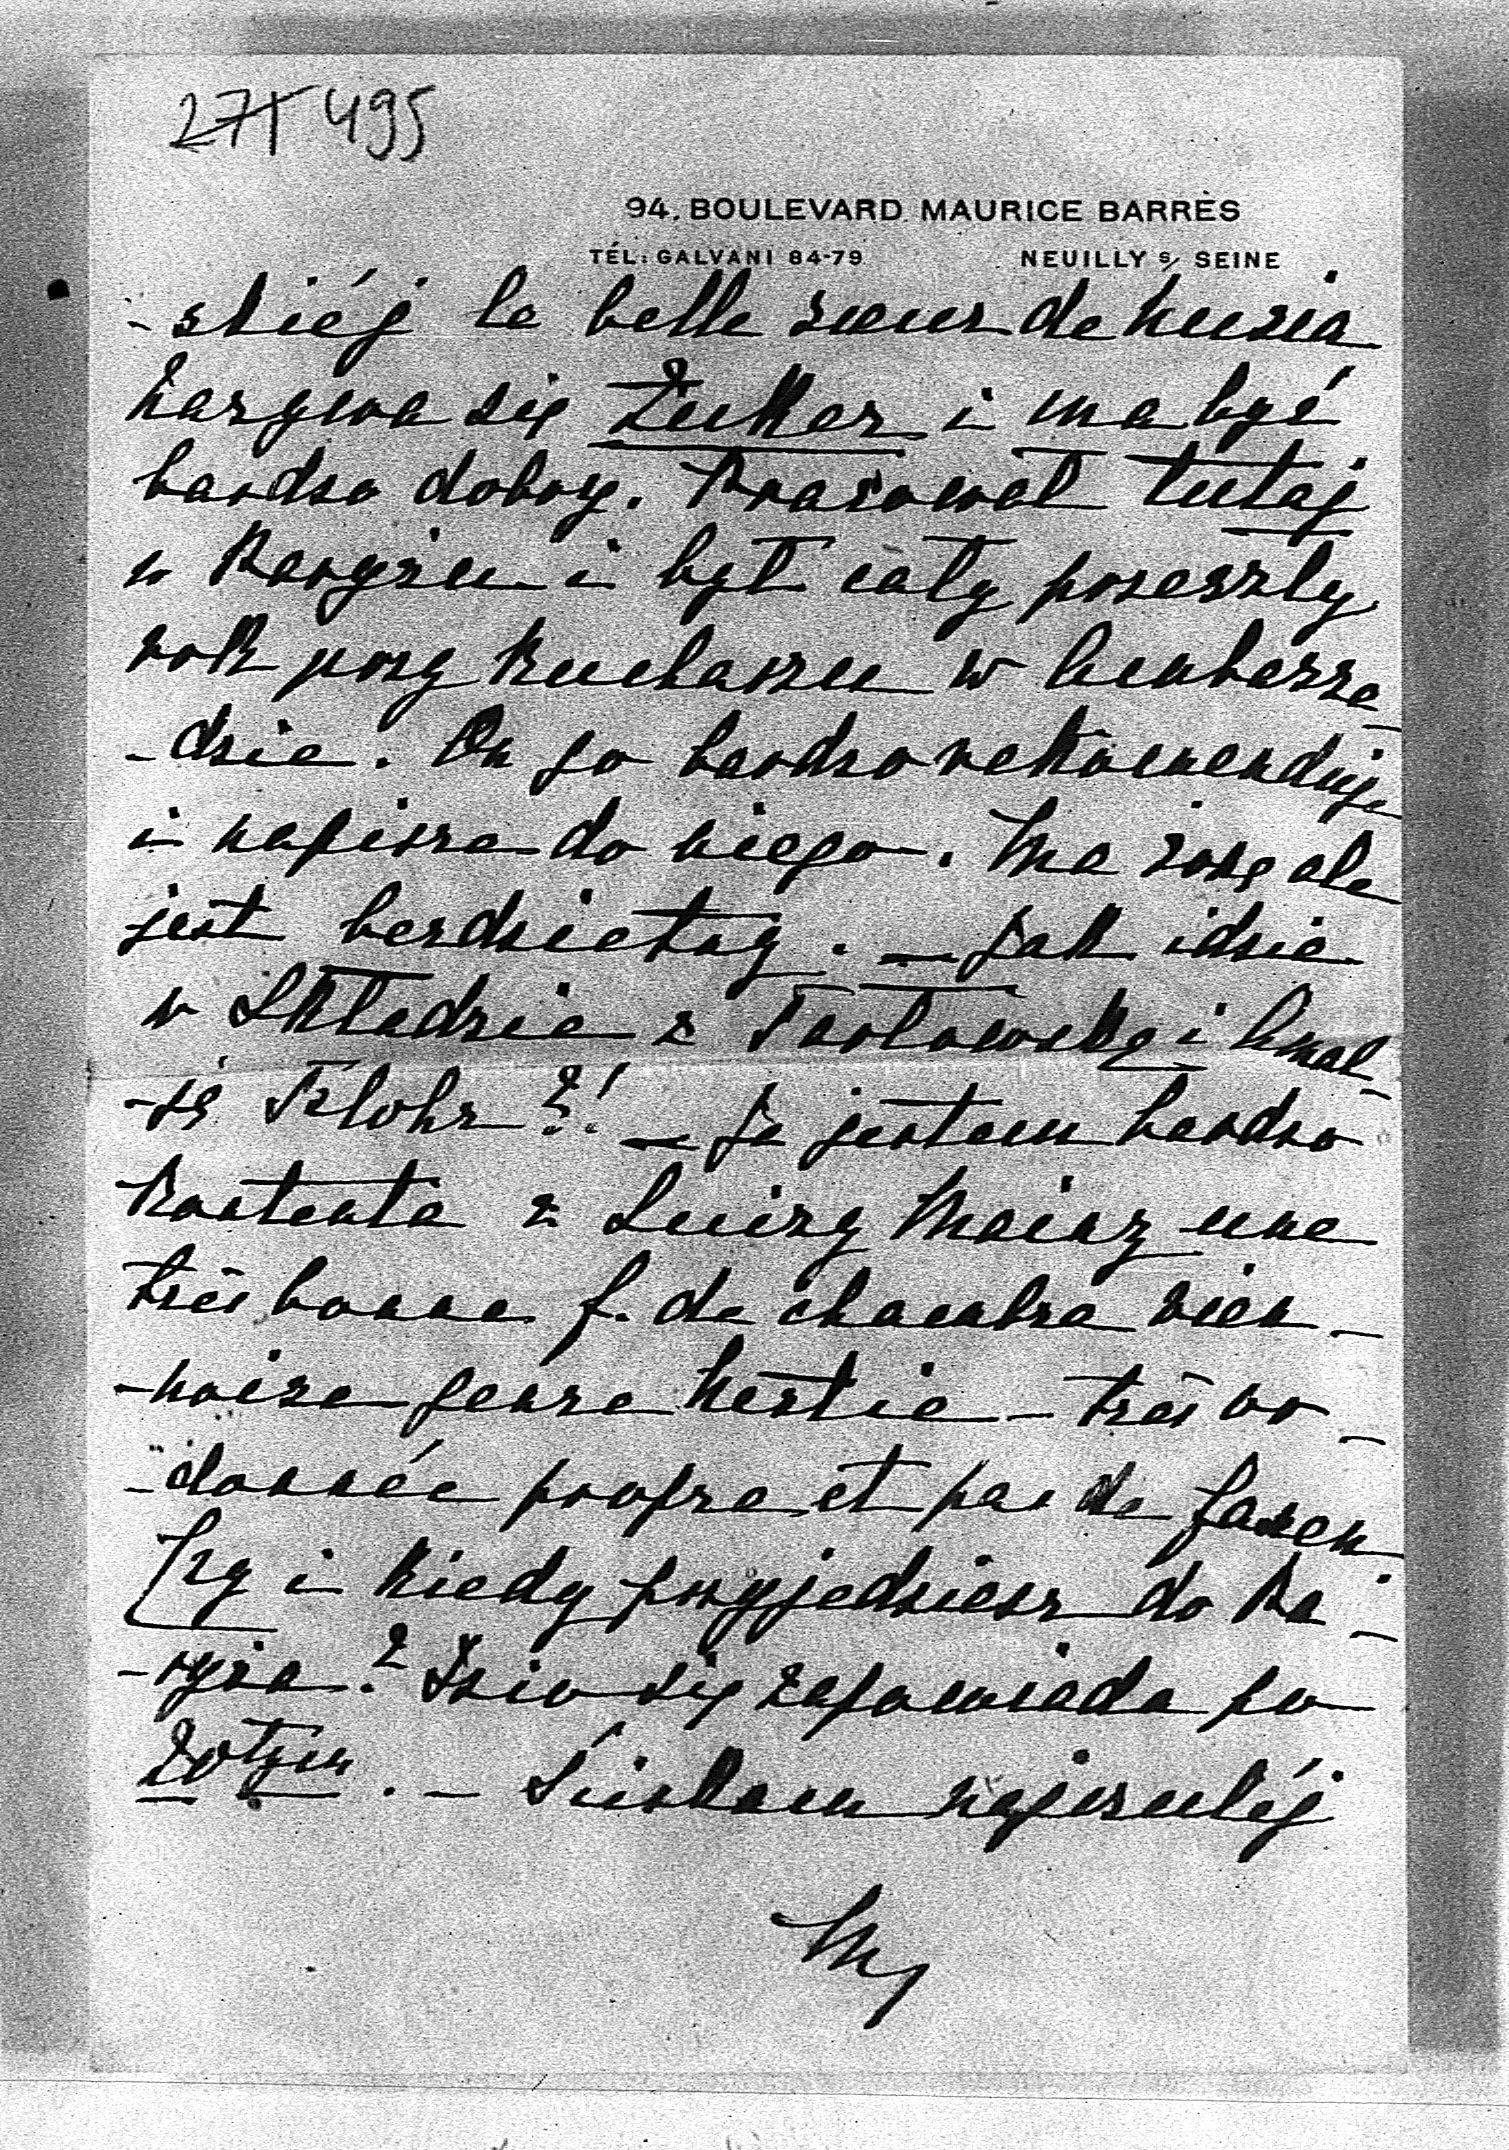 271 495
94, BOULEVARD MAURICE BARRÈS
TÉL: GALVANI 84-79 NEUILLY s/ SEINE
-skiéj la belle sœur de Kuzia
nazywa się Żuker i ma być
bardzo dobry. Pracował tutaj
w Paryżu i był cały przeszły
rok przy kucharzu w Ambassa-
-dzie. On go bardzo rekomenduje
i napisze do niego. Ma żonę ale
jest bezdzietny. — Jak idzie
w Składzie z Tarłowską i
Flohr?! — Ja jestem bardzo
kontenta z Luizy Mainz une
très bonne f. de chambre vien-
-noise genre — très or-
-donnée propre et pas de façon
Czy i kiedy przyjedziesz do Pa-
-ryża? się zapowiada po
20tym. — Ściskam najczuléj